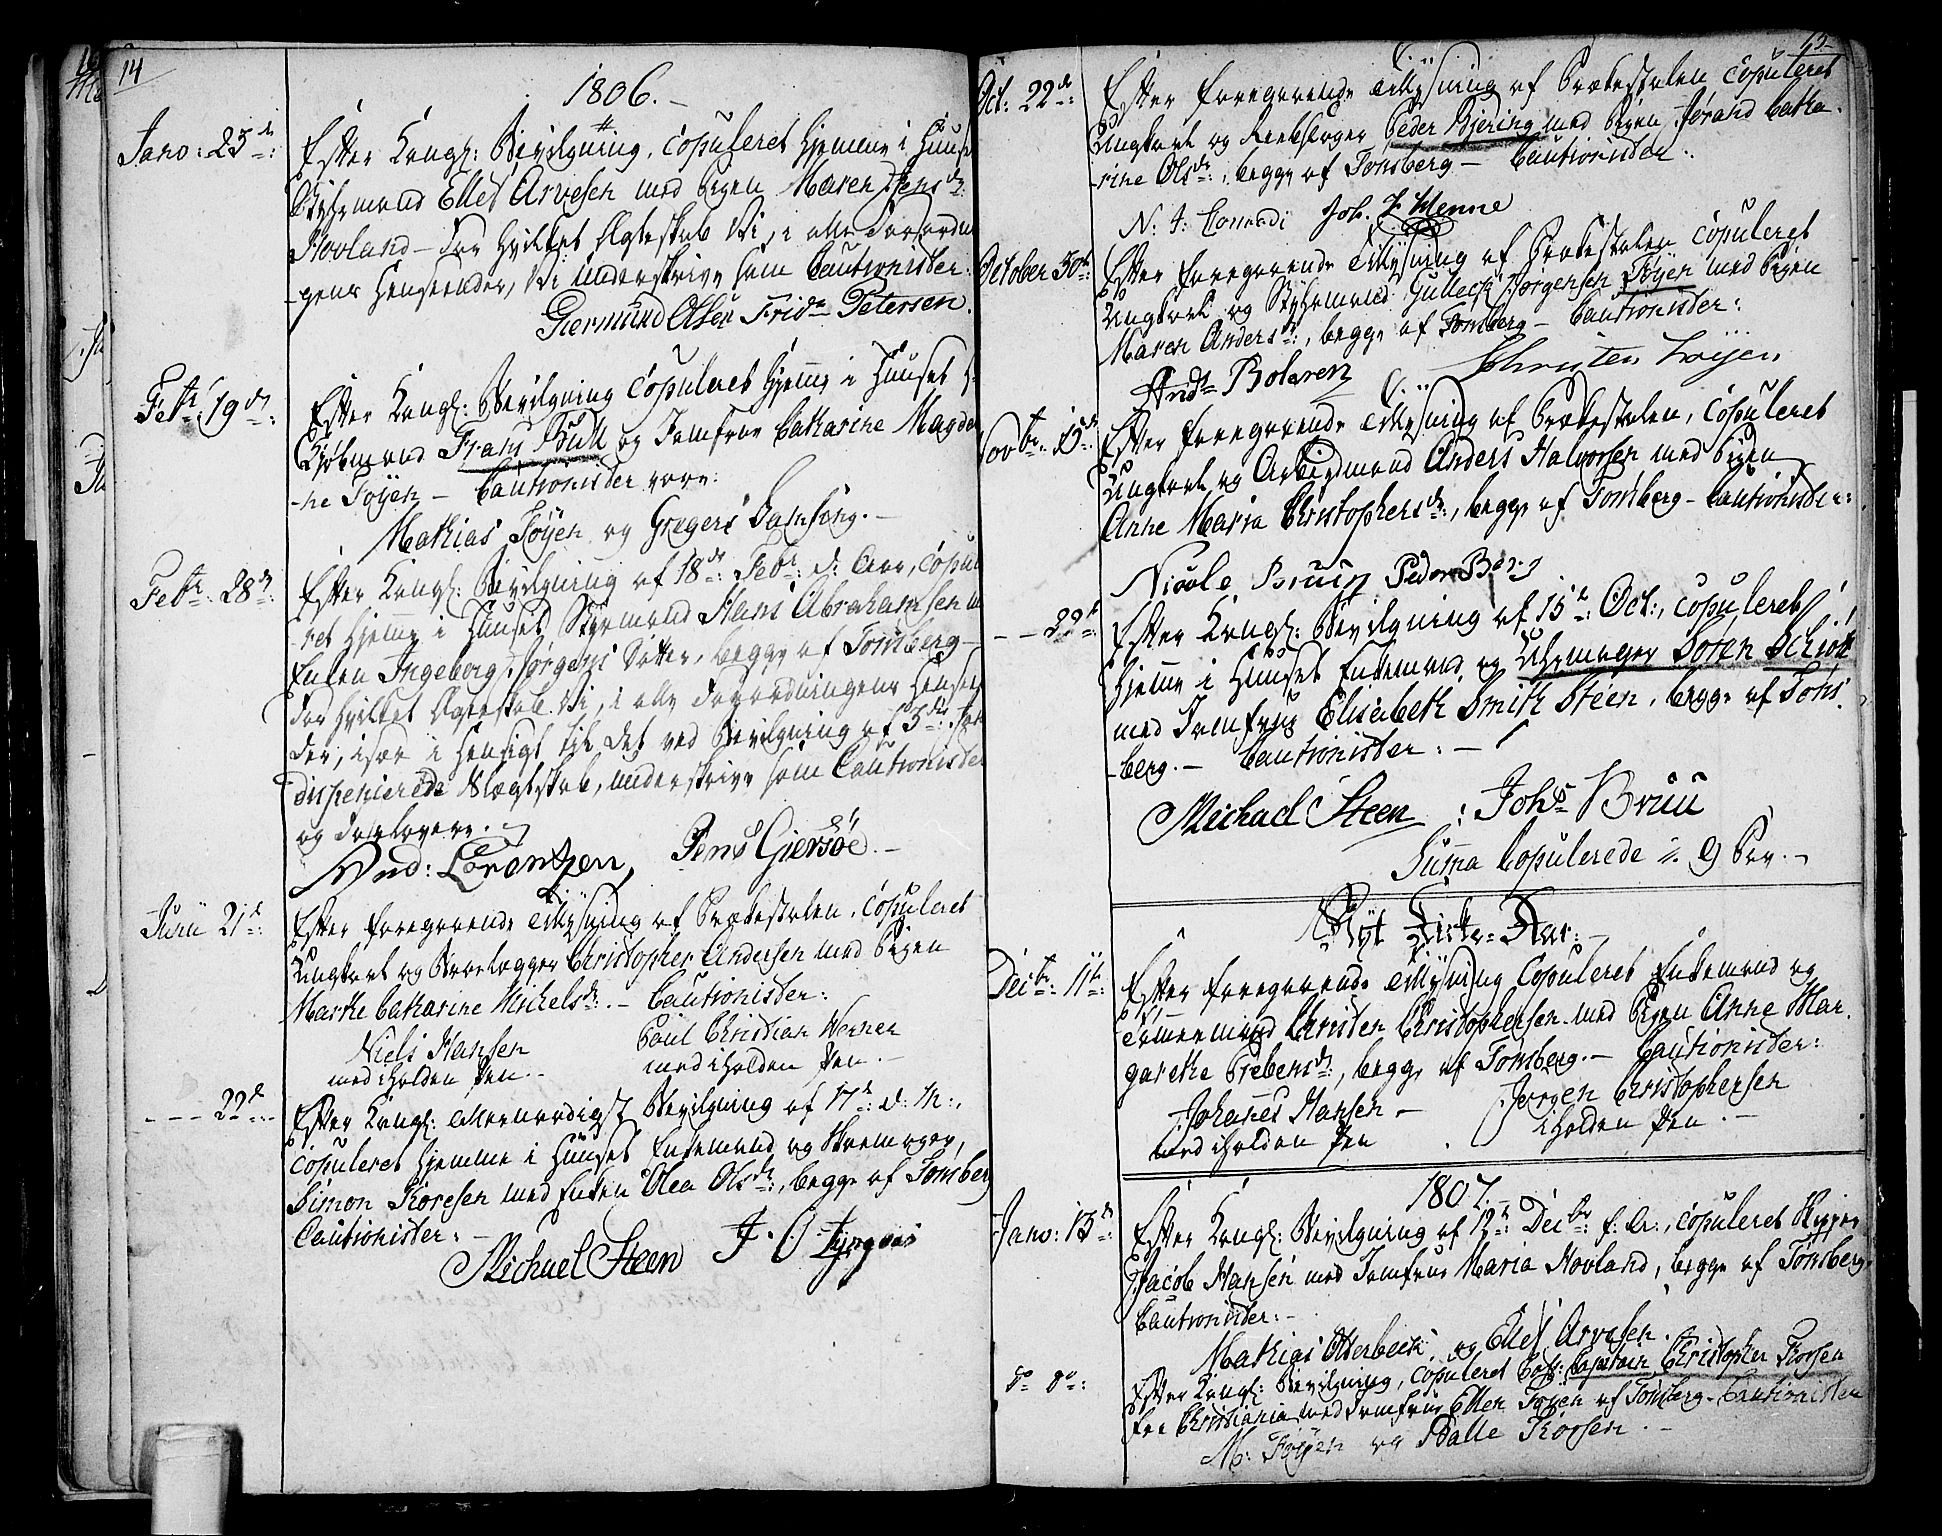 14
1806.
Janv: 23de:
Efter Kongl: Bevilgning, copuleret hjemme i Huuset
Styrmand Ellef Arvesen med Pigen Maren Jensdr:
Hovland – For hvilket Ægteskab Vi, i alle Forordnin-
gens Henseender, Vi underskrive som Cautionister:
Giermund Olsen Fridr Petersen.
Febr: 19de:
Efter Kongl: Bevilgning copuleret hjemme i Huuset
Kjøbmand Frans Bull og Jomfrue Catharine Magda-
ne Føyen – Cautionister vare:
Mathias Føyen og Gregers Samsing. –
Febr: 28de:
Efter Kongl: Bevilgning af 18de: Febr: d: Aar, copule-
ret hjemme i Huuset Styrmand Hans Abrahamsen
Enken Ingeborg Jørgens Datter, begge af Tønsberg –
For hvilket Ægteskab Vi, i alle Forordningens Henseen-
der, især i Hensigt til det ved Bevilgning af 3de:
dispenserede Slægtskab, underskrive som Cautionister
og Forlovere.
And: Lorentzen, Jens Giersøe. –
Junii 21de:
Efter foregaaende Tillysning af Prækestolen, copuleret
Ungkarl og Broelægger Christopher Andersen med Pigen
Marthe Catharine Michelsdr: – Cautionister:
Niels Hansen Paul Christian Werner
med iholden Pen. – med iholden Pen. –
– – – 22de:
Efter Kongl: allernaadigst Bevilgning af 17de: d: M:,
copuleret hjemme i Huuset Enkemand og Skoemager,
Simon Thoresen med Enken Olea Olsdr:, begge af Tønsberg
Cautionister: –
Michael Steen J. O. Tyngvas
15
Oct: 22de:
Efter foregaaende Tillysning af Prækestolen copuleret
Ungkarl og Reebslager Peder Bjering med Pigen Jørand Catha-
rine Olsdr:, begge af Tønsberg – Cautionister:
N: J: Conradi Joh. F. Wenne
October 30te:
Efter foregaaende Tillysning af Prækestolen copuleret
Ungkarl og Styrmand Gulleck Jørgensen Føyen med Pigen
Maren Andersdr:, begge af Tønsberg – Cautionister:
Andr Bolæren Christen Føyen
Novbr: 15de:
Efter foregaaende Tillysning af Prækestolen, copuleret
Ungkarl og Arbeidmand Anders Halvorsen med Pigen
Anne Maria Christophersdr:, begge af Tønsberg – Cautionister:
Nicole Bruun Peder Berg
– – 22de:
Efter Kongl: Bevilgning af 15de: Oct:, copuleret
hjemme i Huuset Enkemand og Uhrmager Søren Schiøtt
med Jomfrue Elisabeth Smith Steen, begge af Tøns-
berg. – Cautionister: –
Michael Steen : Johs Bruu
Summa Copulerede 9 Par. –
Nyt Kirke-Aar: –
Decbr: 11te:
Efter foregaaende Tillysning copuleret Enkemand og
Tømmermand Christen Christophersen med Pigen Anne Mar-
garethe Prebensdr:, begge af Tønsberg. – Cautionister:
Johannes Hansen – Jørgen Christophersen
med iholden Pen iholden Pen. –
1807.
Janv: 13de:
Efter Kongl: Bevilgning af 12te: Decbr: f: A:, copuleret Skipper
Jacob Hansen med Jomfrue Maria Hovland, begge af Tønsberg.
Cautionister: –
Mathias Otterbeck, og Ellef Arvesen.
do do:
Efter Kongl: Bevilgning, copuleret Capitain Christopher Thorsen
fra Christiania med Jomfrue Ellen Føyen af Tønsberg – Cautionister
M: Føyen og Palle Thorsen. –